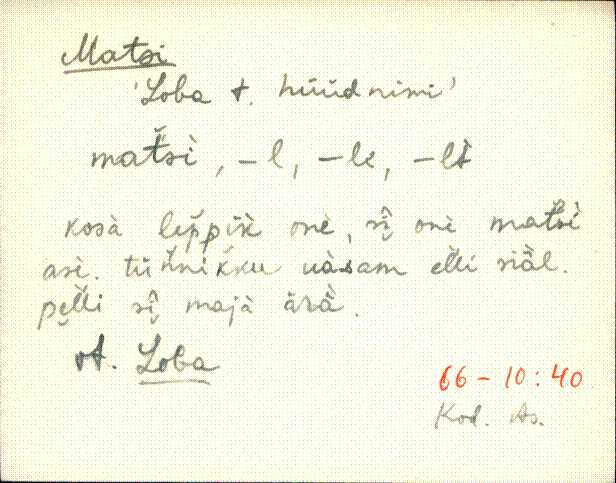 Matsi
'Loba t. hüüdnimi'
mat̆sì, -l, -le, -lt
kosà lep̆pik̆ onè, sî̬ onè mat̆sì
asè. tüŋ̆nik̆ku uàsam el̆li siäl.
pel̆li sî̬ majà ärä̀.
t. Loba
66-10:40
Kod. As.